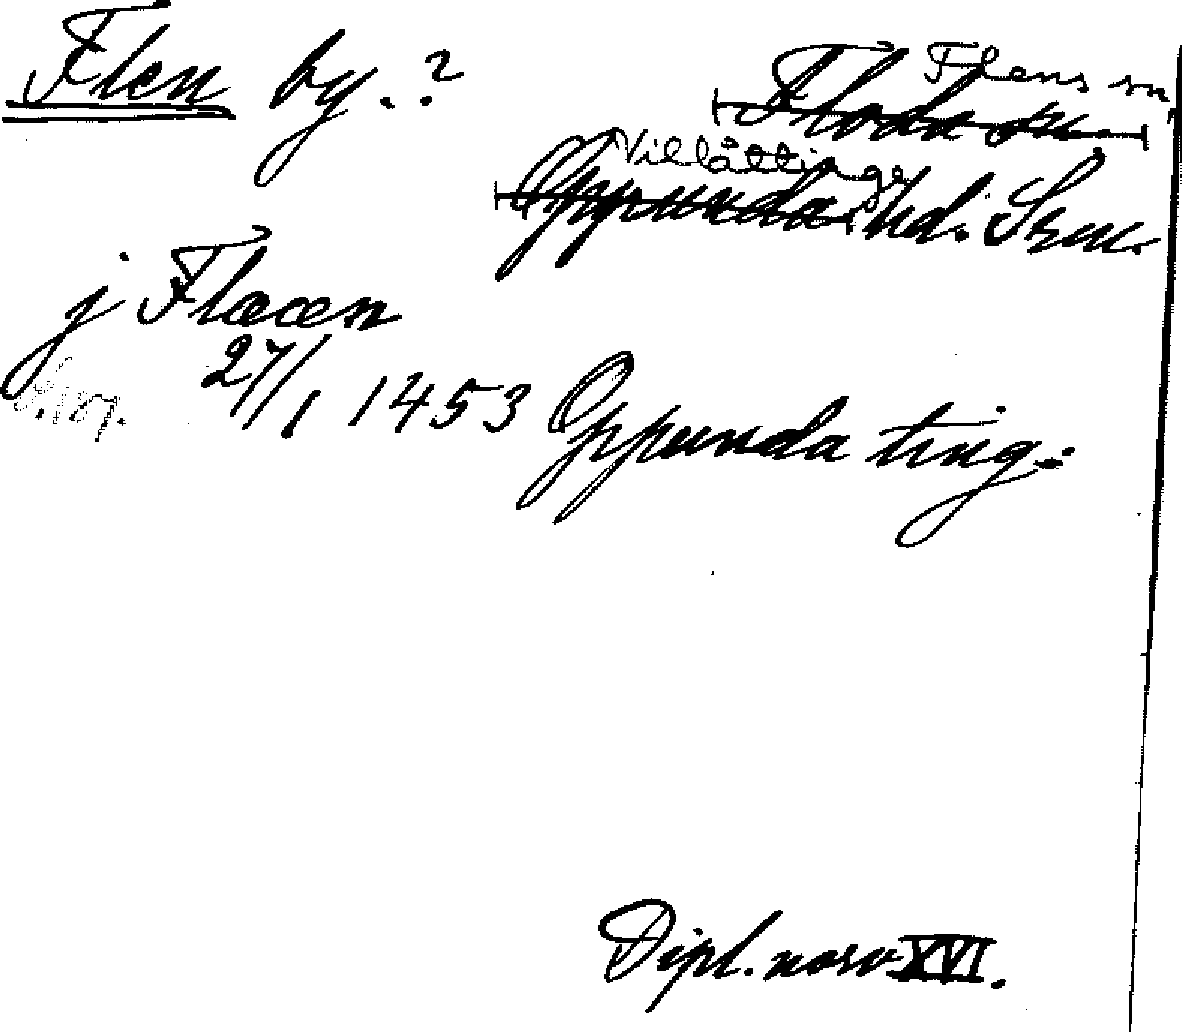 Flen by.? Flens sn
Floda sn.
Villåttinge
Oppunda hd. Srm.
j Flææn
27/1 1453 Oppunda ting.
Dipl. norv XVI.